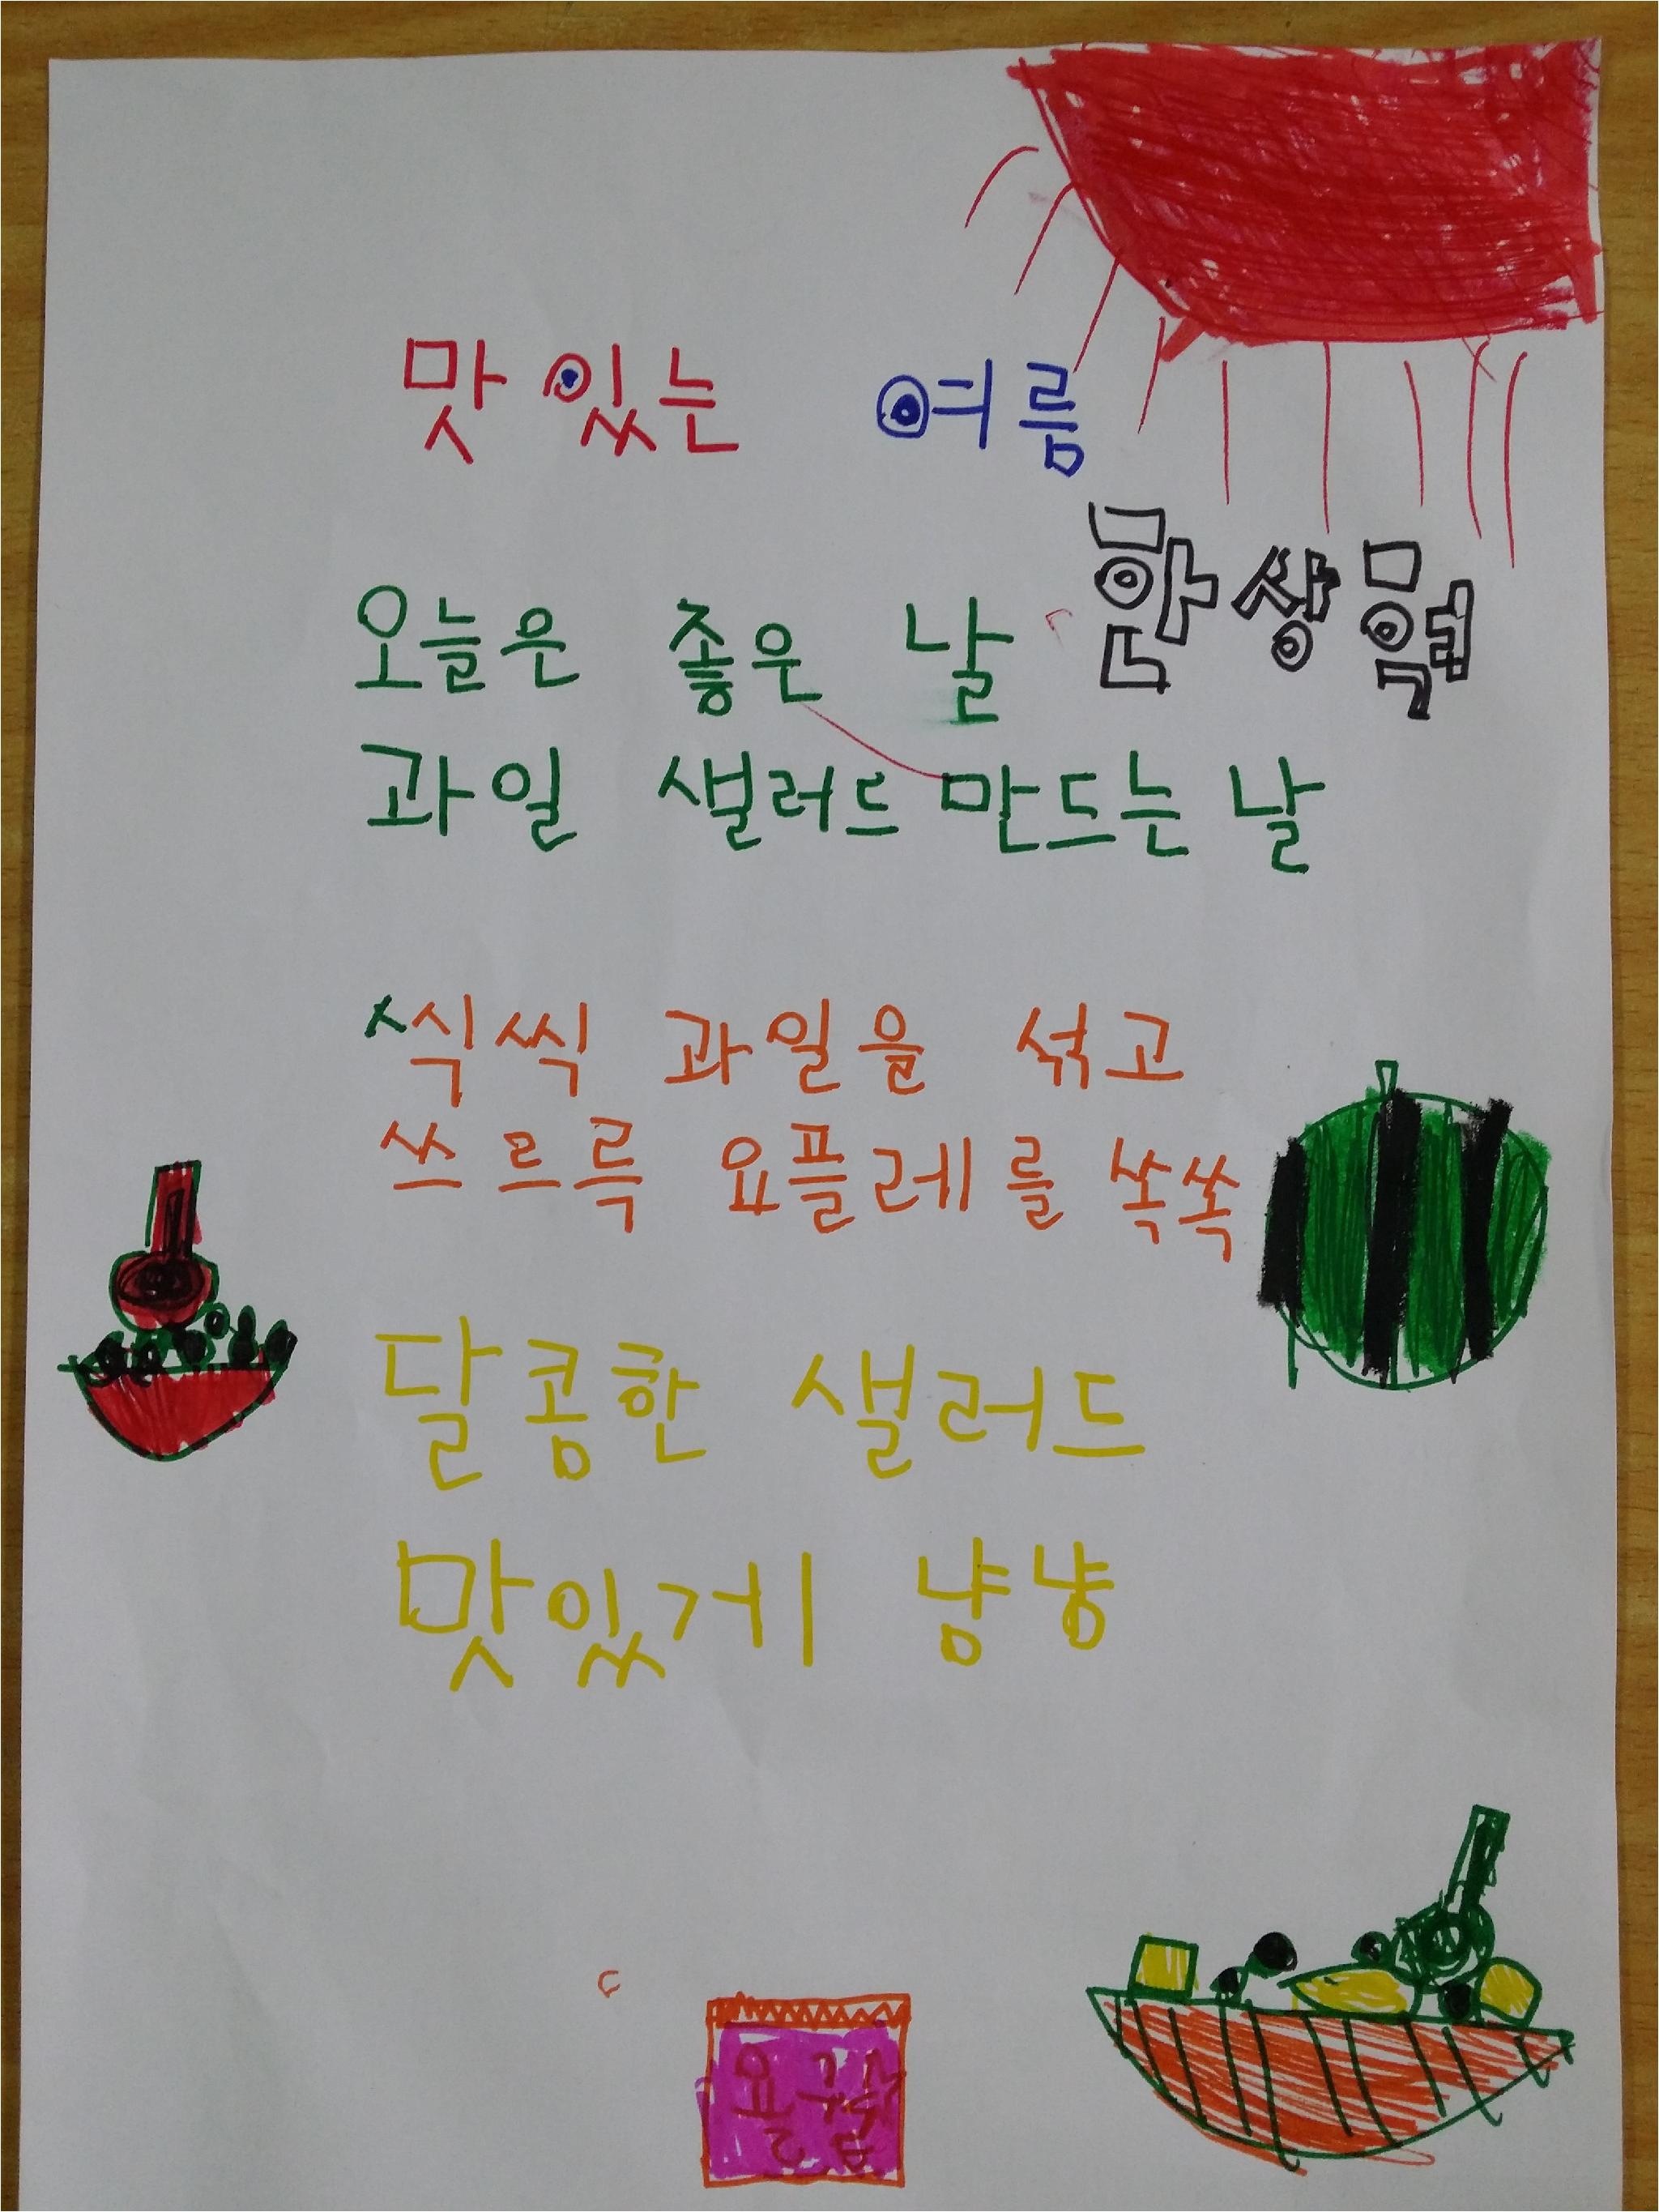 맛있는 여름
오늘은 좋은 날
과일 샐러드 만드는 날
씩씩 과일을 섞고
쓰르륵 요플레를 쏙쏙
달콤한 샐러드
맛있게 냠냠